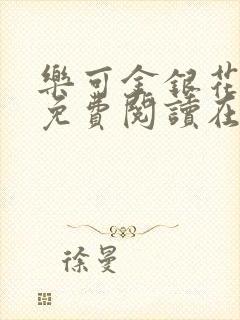 樂可金銀花
免費閱讀在
徐曼